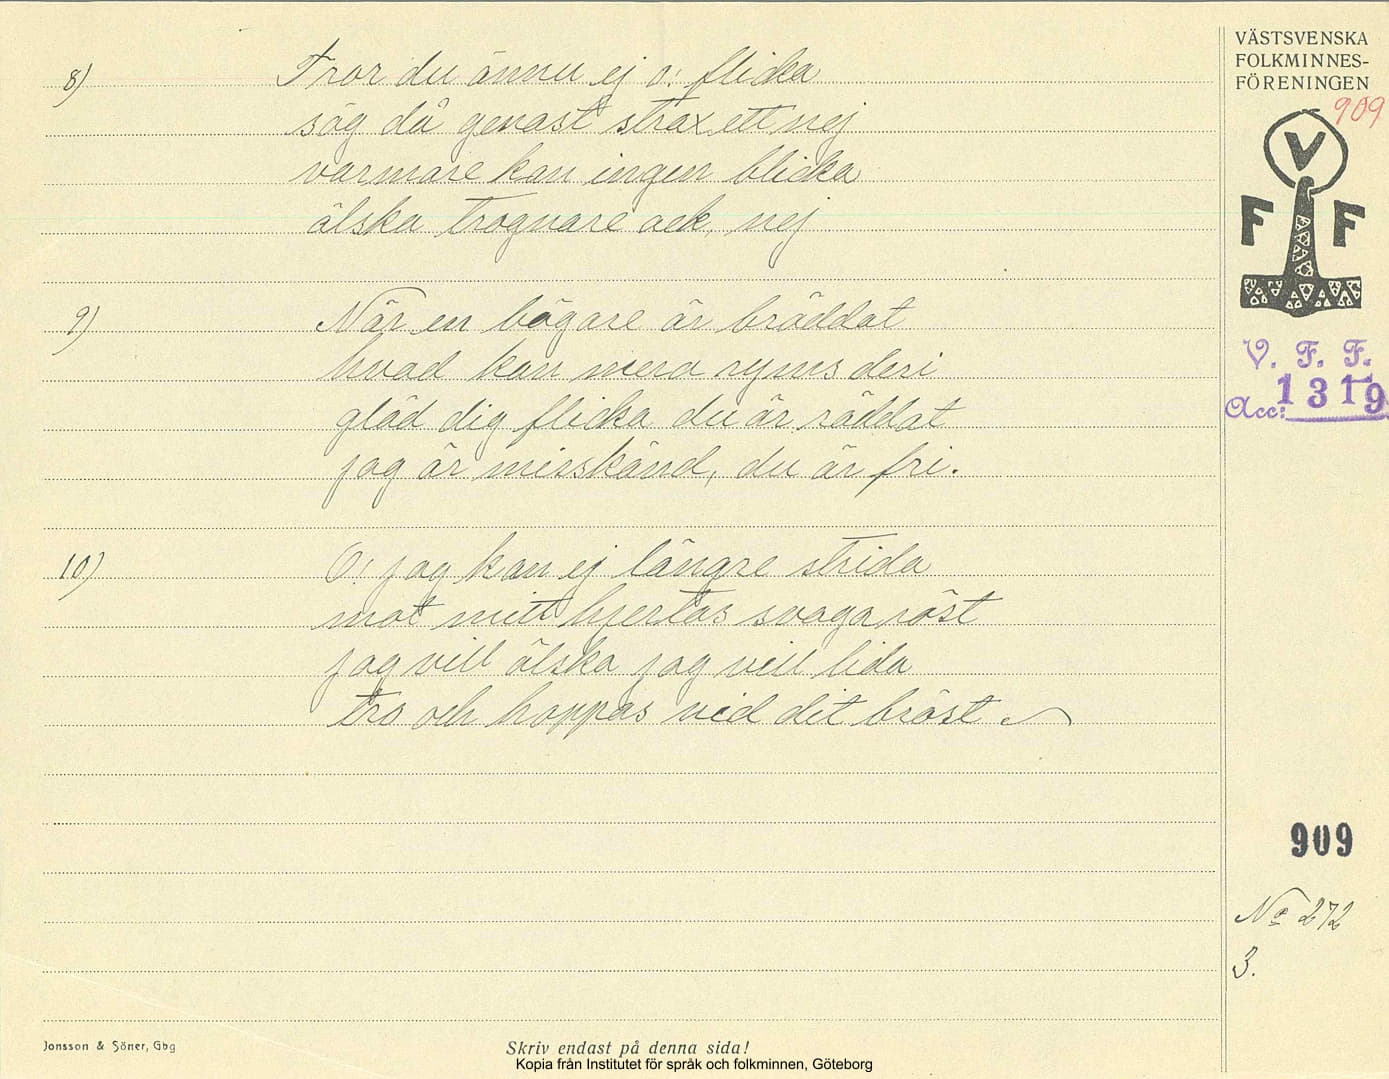 VÄSTSVENSKA
FOLKMINNES-
FÖRENINGEN
909
V
F F
V. F. F.
Acc: 1319
8) Tror du ännu ej o! flicka
säg då genast strax ett nej
varmare kan ingen blicka
älska trognare ack, nej
9) När en bägare är bräddat
hvad kan mera ryms deri
gläd dig flicka du är räddat
jag är misskänd, du är fri.
10) O! jag kan ej längre strida
mot mitt hjertas svaga röst
jag vill älska jag vill lida
tro och hoppas vid dit bröst
909
No 272
3.
Jonsson & Söner, Gbg
Skriv endast på denna sida!
Kopia från Institutet för språk och folkminnen, Göteborg